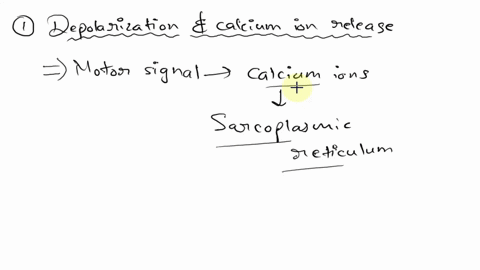 ① Depolarization & calcium ion release
⇒ Motor signal → calcium ions
↓
Sarcoplasmic
reticulum